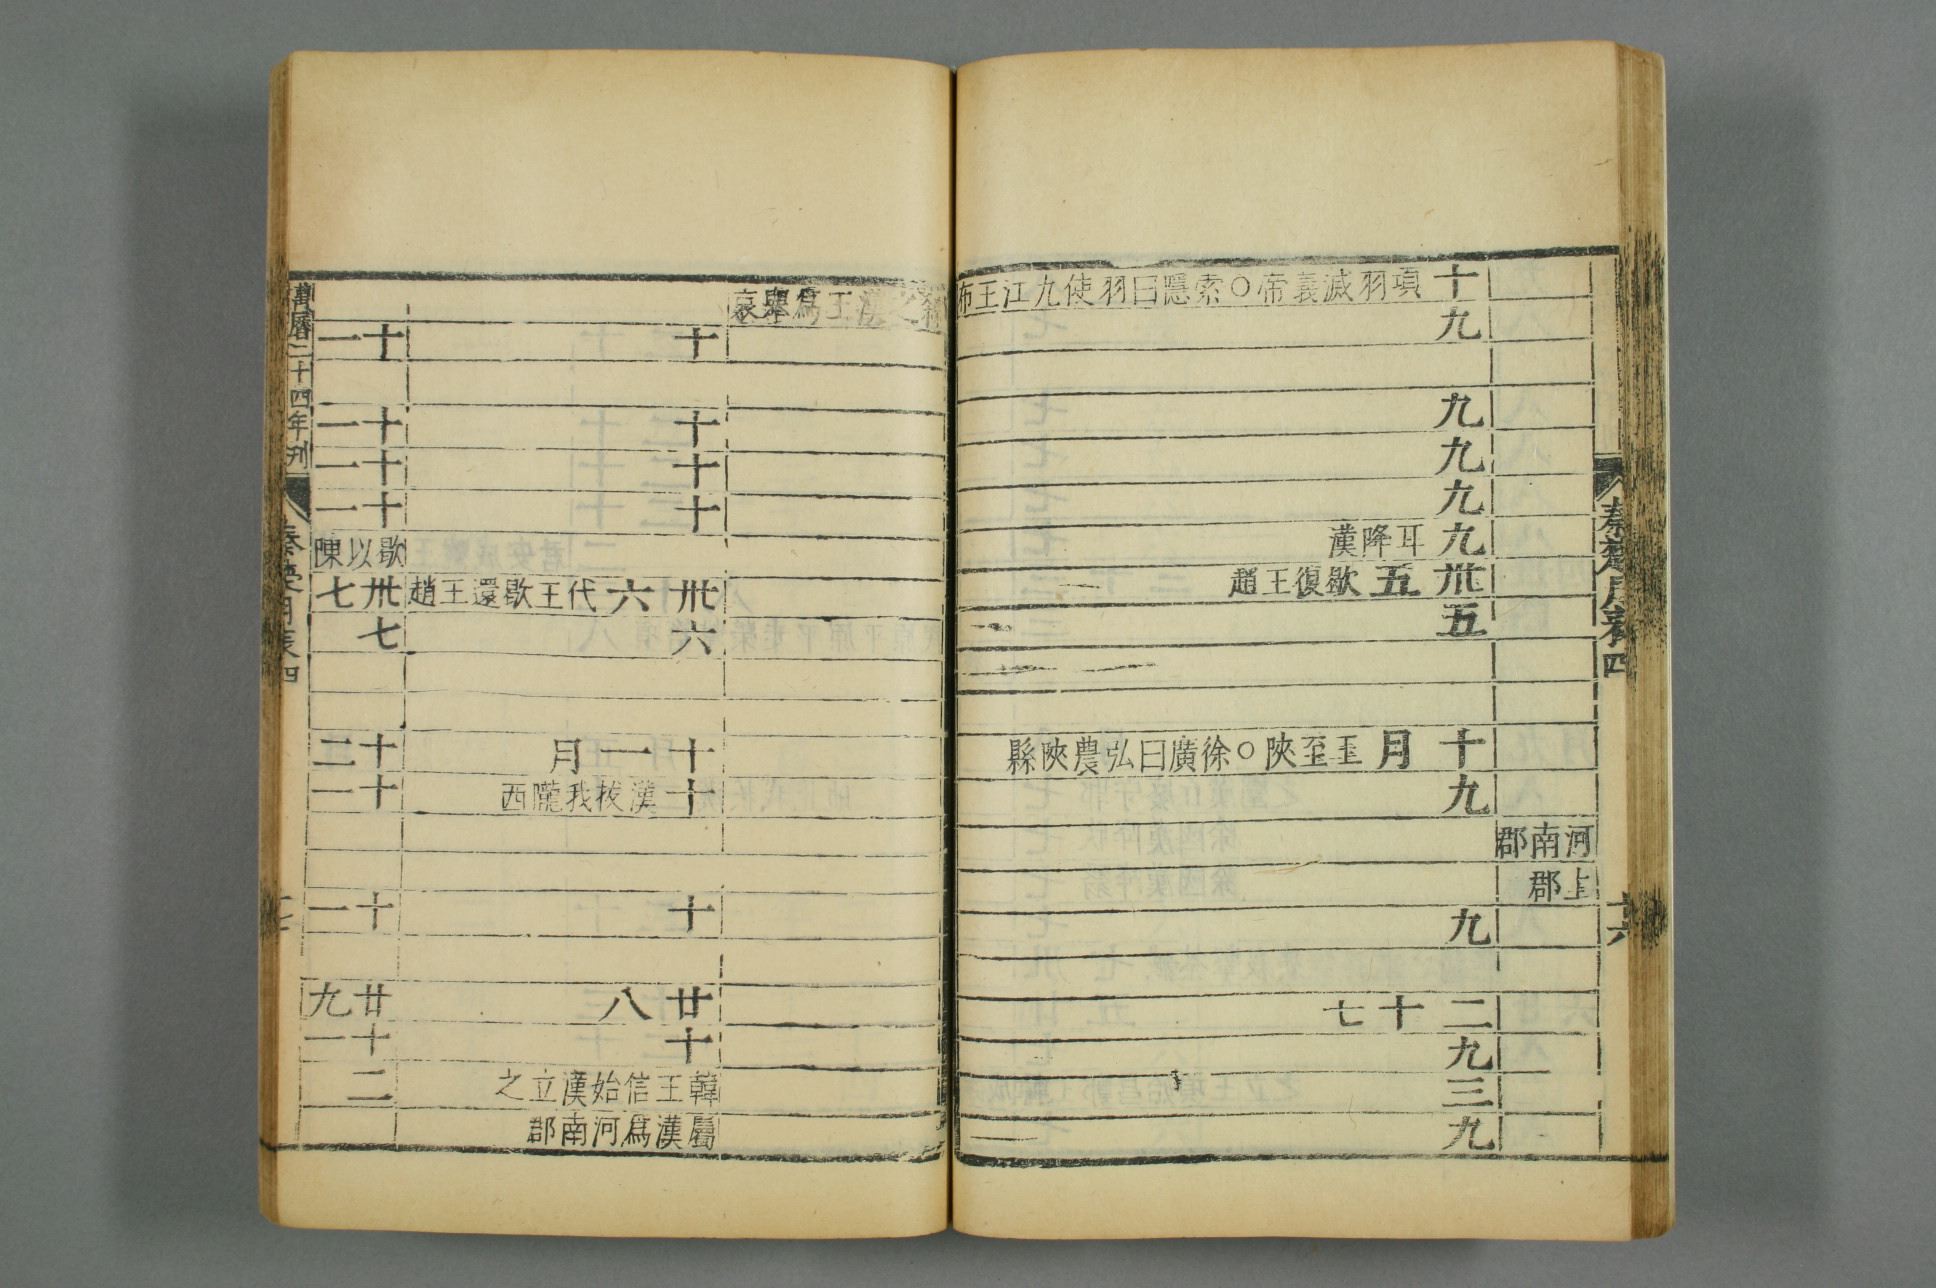 秦楚月表四
十六
河南郡
上郡
十 項羽滅義帝○索隱曰羽使九江王布
九
九
九
九
九 耳降漢
卅五 歇復王趙
五
十月 王至陝○徐廣曰弘農陝縣
九
九
二十七
九
三
九
殺之漢王爲舉哀
十
十
十
十
卅六 代王歇還王趙
六
十一月
十 漢拔我隴西
十
廿八
十
韓王信始漢立之
屬漢爲河南郡
十一
十一
十一
十一
歇以陳
卅七
七
十二
十一
十一
廿九
十一
二
萬曆二十四年刊
秦楚月表四